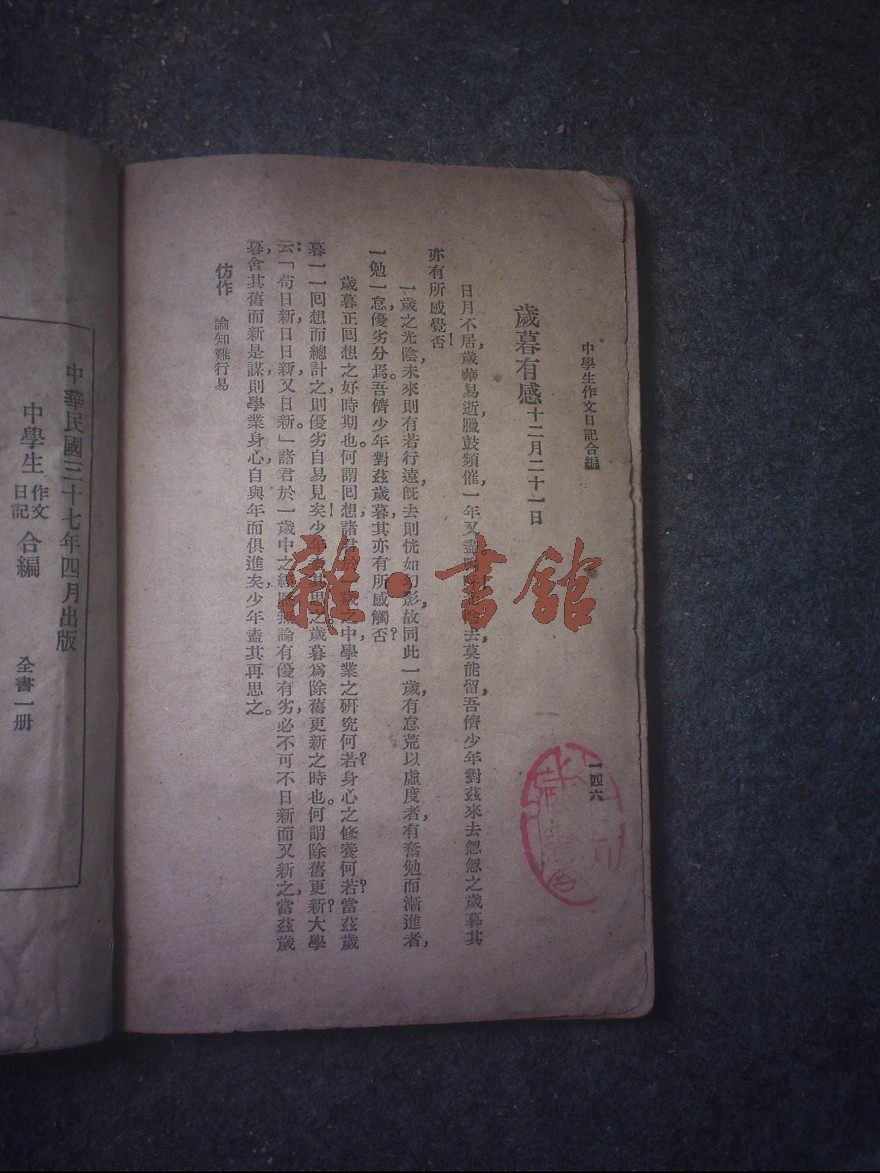 中學生作文日記合編
一四六
歲暮有感 十二月二十一日
日月不居，歲華易逝，臘鼓頻催，一年又盡，去莫能留，吾儕少年對茲來去忽忽之歲暮，其
亦有所感覺否！
一歲之光陰，未來則有若行遠，旣去則恍如幻影，故同此一歲，有怠荒以虛度者，有奮勉而漸進者，
一勉一怠，優劣分焉。吾儕少年對茲歲暮，其亦有所感觸否？
歲暮正囘想之好時期也。何謂囘想，諸君於中學業之硏究何若？身心之修養何若？當茲歲
暮，一一囘想而總計之，則優劣自易見矣！少年思之。歲暮爲除舊更新之時也。何謂除舊更新？大學
云：「苟日新，日日新，又日新」諸君於一歲中之無論有優有劣，必不可不日新而又新之，當茲歲
暮，舍其舊而新是謀，則學業身心自與年而俱進矣，少年盍其再思之。
仿作 論知難行易
中華民國三十七年四月出版
中學生作文日記合編 全書一册
雜·書館